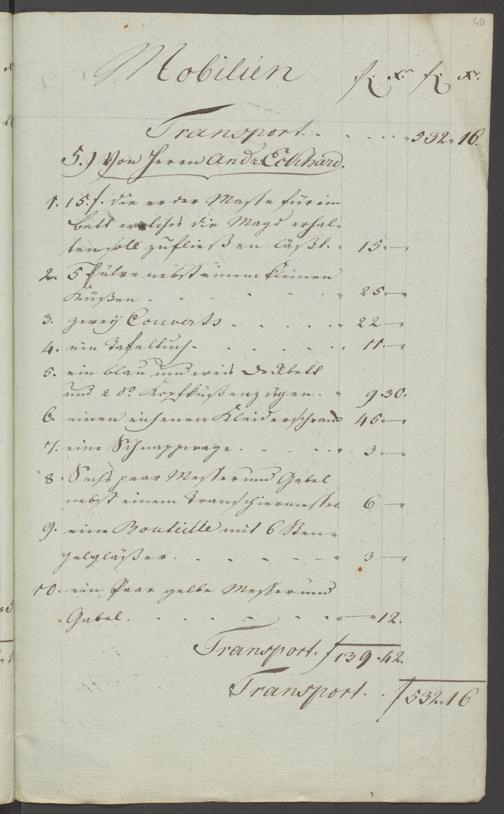 40
Mobilien f. Xr. f. Xr.
Transport . . . . . 532. 16.
5.) Von Herrn Andr. Eckhard.
1. 15. f. die er der Masse für ein
Bett welches die Magd erhal-
ten soll zufließen läßt. " 15. —
2. 5 Pülve nebst einem kleinen
Küßen . . . . . " 25 —
3. zwey Couverts . . . . " 22 —
4. ein Tafeltuch . . . . " 11. —
5. ein blau und weis Deckbett
und 2 do. Kopfküßenzügen . " 9 30.
6. einen eichenen Kleiderschrank 45. —
7. eine Schnappwage . . . . " 3 —
8. Sechs paar Messer und Gabel
nebst einem Transchiermesser 6 —
9. eine Bouteille mit 6 Sten-
gelgläßer . . . . . " 3 —
10. ein Paar gelbe Messer und
Gabel . . . . . . " — " 12.
Transport. f 139. 42.
Transport . . f 532. 16